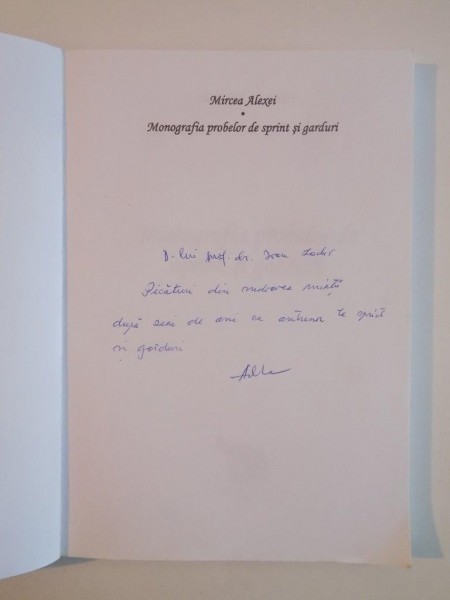 Mircea Alexei
•
Monografia probelor de sprint și garduri
D-lui prof. dr. Ioan
Picături din sudoarea minții
după zeci de ani ca antrenor la sprint
și garduri